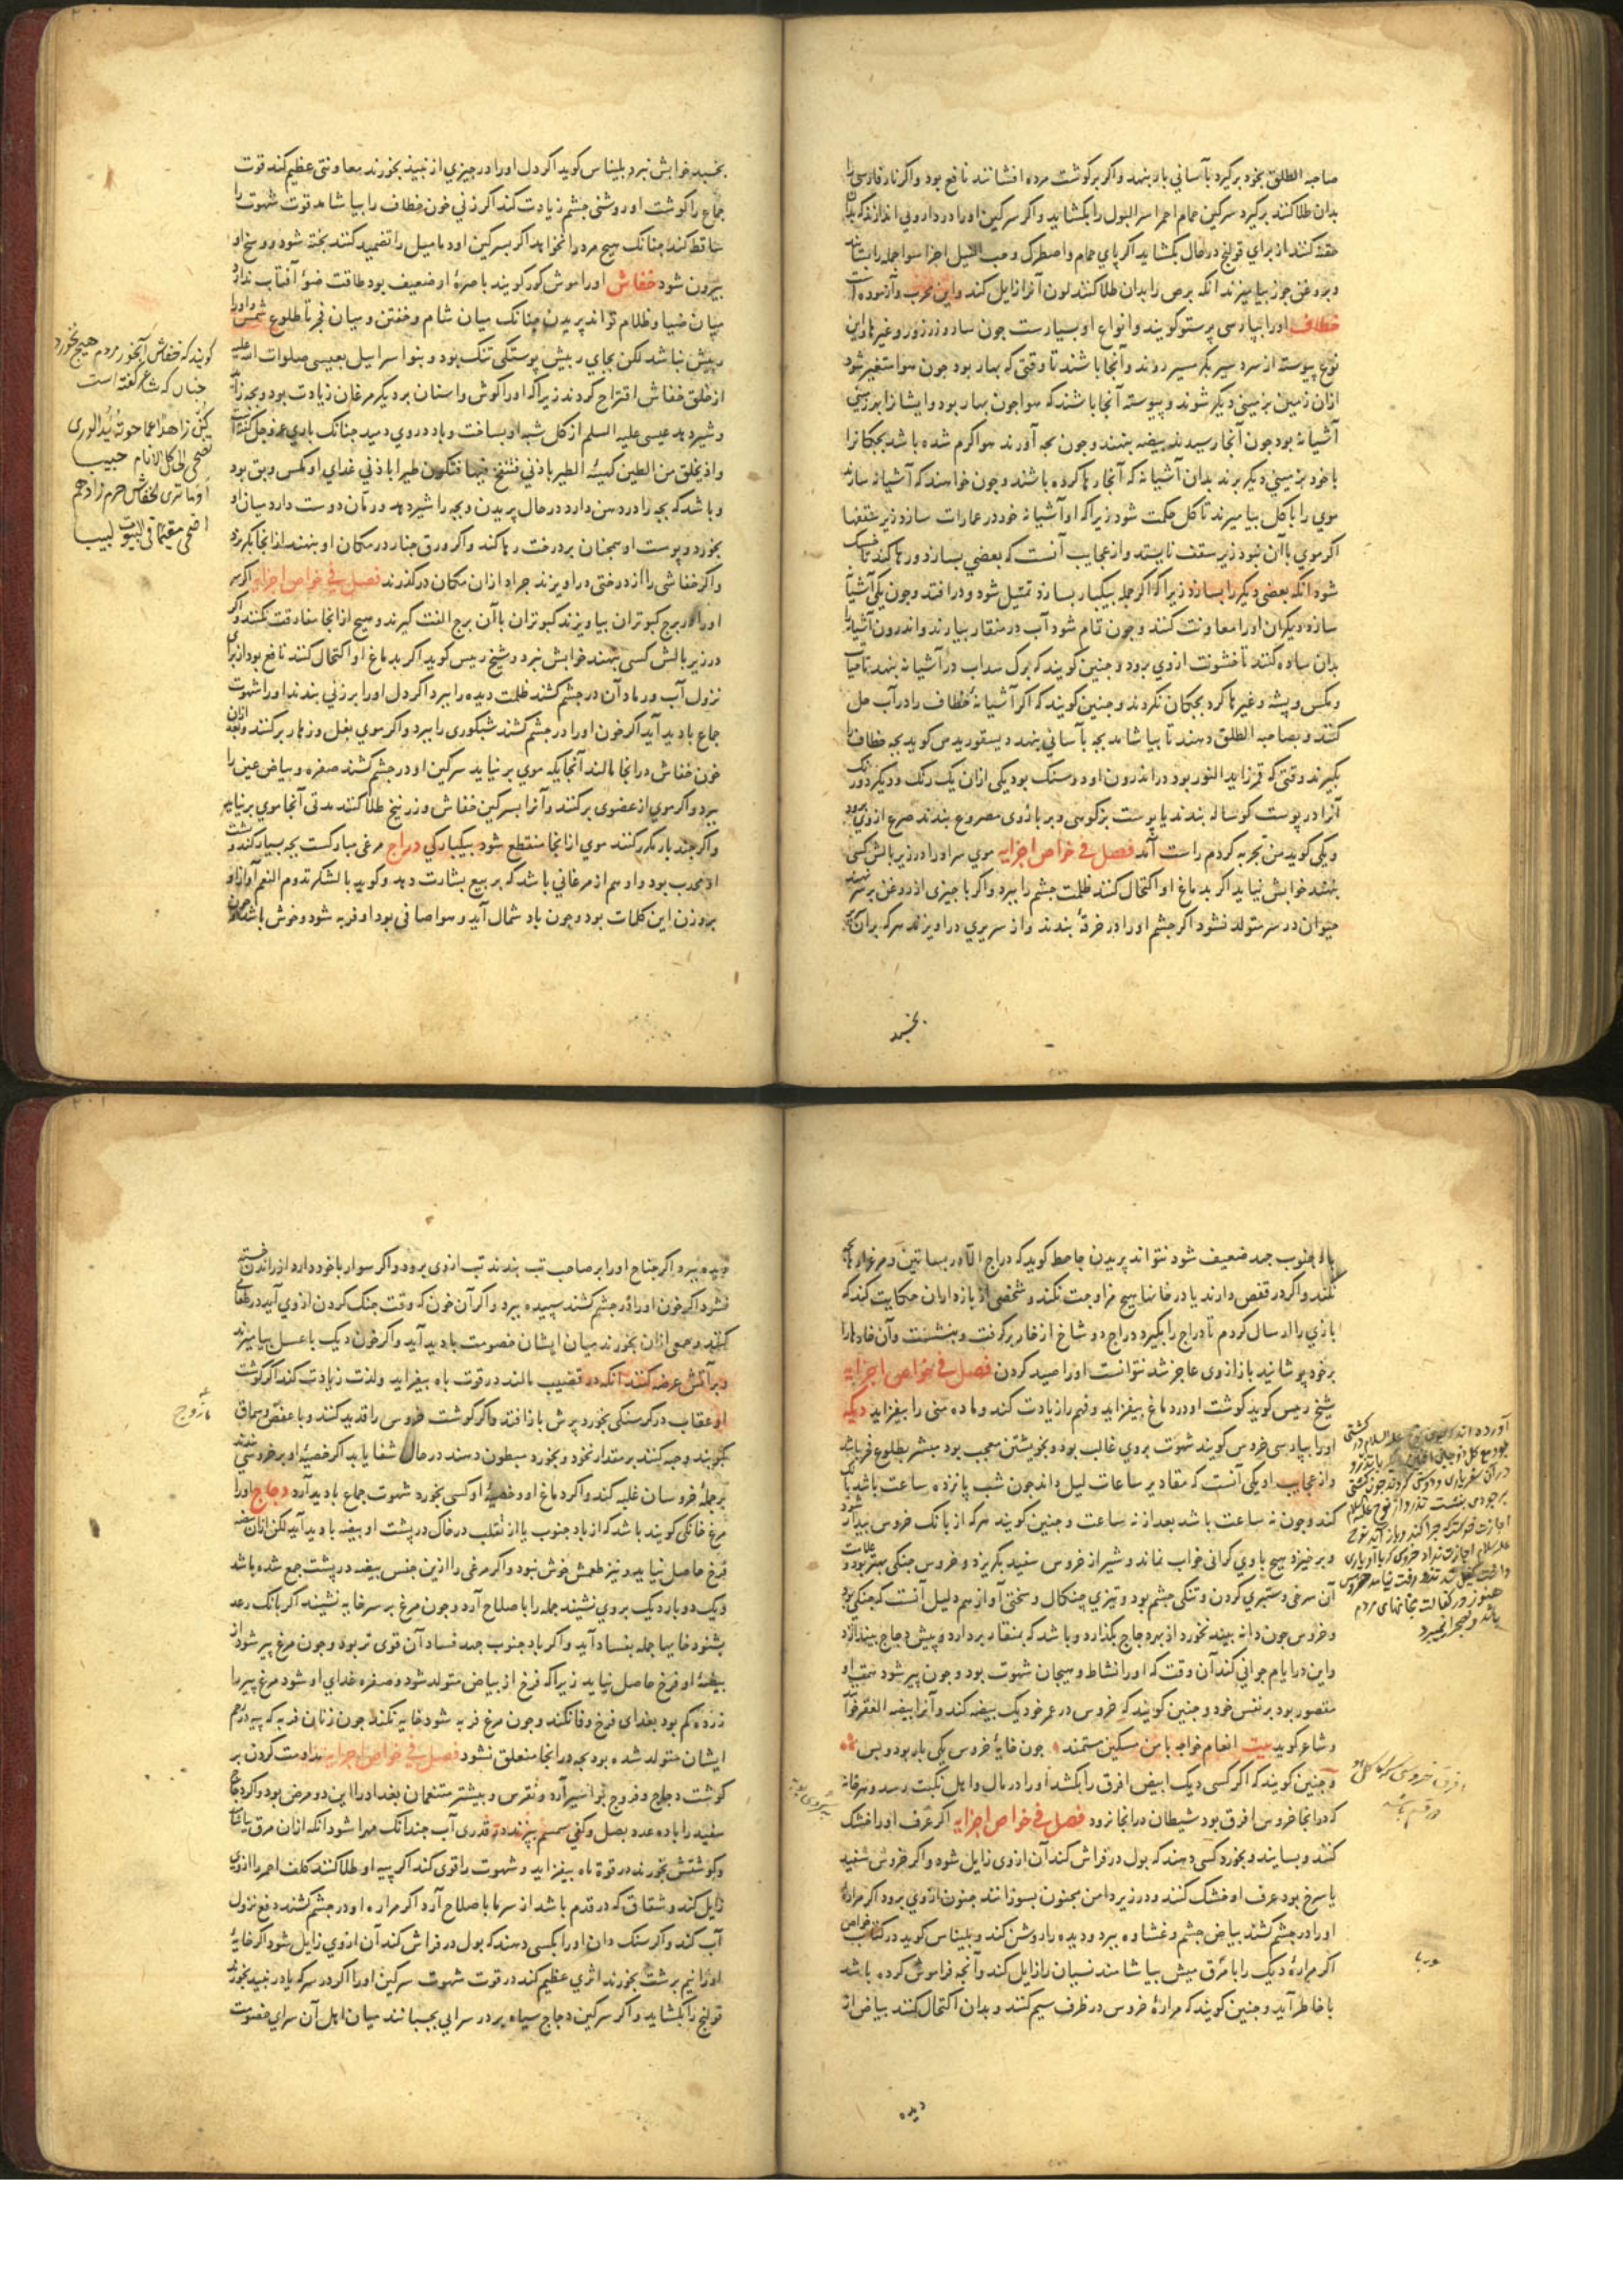 صاحبة الطلق بخود برگیرد بآسانی بار بنهد واکر بر کوشت مرده افشانند نافع بود واکر نار فارسی را
بدان طلا کنند برکیرد سرکین حمام احمر اسر البول را بکشاید واکر سرکین او را در داروئی اندازند که بدان
حقنه کنند از برای قولنج در حال بکشاید اکر پای حمام واصطرک وحب النیل اجزا سوا جمله را بستانند
وبروغن جوز بیامیزند آنکه برص را بدان طلا کنند لون آنرا زایل کند واین مجرب وآزموده است
خطاف اورا بپارسی پرستو کویند وانواع او بسیارست جون سار وزرزور وغیرها واین
نوع پیوسته از سردسیر بکرمسیر روند وآنجا باشند تا وقتی که بهار بود جون هوا متغیر شود
ازان زمین بزمینی دیکر شوند وپیوسته آنجا باشند که هوا جون بهار بود وایشانرا بهر زمینی
آشیانه بود جون آنجا رسیدند بیضه بنهند وجون بجه آورند هوا کرم شده باشد بجکانرا
با خود بزمینی دیکر برند بدان آشیانه که آنجا رها کرده باشند وجون خواهند که آشیانه سازند
موی را با کل بیامیزند تا کل محکمت شود زیرا که او آشیانه خود در عمارات سازد زیر سقفها
اکر موی با آن نبود زیر سقف نایستد واز عجایب آنست که بعضی بسازد ورها کند تا خشک
شود آنکه بعضی دیکر را بسازد زیرا که اکر جمله بیکبار بسازد ثقیل شود ودر افتد وجون یکی آشیانه
سازد دیکران اورا معاونت کنند وجون تمام شود آب در منقار بیارند واندرون آشیانه را
بدان ساده کنند تا خشونت ازوی برود وجنین کویند که برک سداب در آشیانه بنهد تا حیات
ومکس وپشه وغیرها کرد بجکان نکردند وجنین کویند که اکر آشیانهٔ خطاف را در آب حل
کنند وبصاحبة الطلق دهند تا بیاشامد بجه بآسانی بنهد دیسقوریدس کوید بجه خطاف را
بکیرند وقتی که قمر زاید النور بود در اندرون او دو سنک بود یکی ازان یک رنک ودیکر دو رنک
آنرا در پوست کوساله بندند یا پوست بزکوهی وبر بازوی مصروع بندند صرع ازوی برود
ویکی کوید من تجربه کردم راست آمد فصل فی خواص اجزایه موی سر اورا در زیر بالش کسی
بنهند خوابش نیاید اکر بدماغ او اکتحال کنند ظلمت جشم را ببرد واکر با جیزی از روغن بر سر نهند
حیوان در سر متولد نشود اکر جشم اورا در خرقهٔ بندند واز سریری در آویزند هر که بران سریر
بخسبد
بخسبد خوابش نبرد بلیناس کوید اکر دل اورا در جیزی از نبیذ بخورند معاونتی عظیم کند قوت
جماع را کوشت او روشنی جشم زیادت کند اکر زنی خون خطاف را بیاشامد قوت شهوت را
ساقط کند جنانک هیج مرد را نخواهد اکر بسرکین او دمامیل را تضمید کنند پخته شود ووسخ او
بیرون شود خفاش اورا موش کور کویند باصرهٔ او ضعیف بود طاقت ضوٴ آفتاب ندارد
میان ضیا وظلام تواند پریدن جنانک میان شام وخفتن ومیان فجر تا طلوع شمس واورا
ریش نباشد لکن بجای ریش پوستکی تنک بود وبنو اسراییل بعیسی صلوات الله علیه
از خلق خفاش اقتراح کردند زیرا که اورا کوش واسنان بر دیکر مرغان زیادت بود وبجه زاید
وشیر دهد عیسی علیه السلم از کل شبه او بساخت وباد در وی دمید جنانک باری عز وجل کفته است
واذ تخلق من الطین کهیئة الطیر باذنی فتنفخ فیها فتکون طیرا باذنی غذای او مکس وبق بود
وباشد که بجه را در دهن دارد در حال پریدن وبجه را شیر دهد ورمان دوست دارد میان او
بخورد وپوست او همجنان بر درخت رها کند واکر ورق جنار در مکان او بنهند از آنجا بکریزد
واکر خفاشی را از درختی در آویزند جراد ازان مکان درکذرند فصل فی خواص اجزایه اکر سر
اورا در برج کبوتران بیاویزند کبوتران با آن برج الفت کیرند وهیج از آنجا مفارقت نکنند واکر
در زیر بالش کسی بنهند خوابش نبرد وشیخ رییس کوید اکر بدماغ او اکتحال کنند نافع بود از برای
نزول آب ورماد آن در جشم کشند ظلمت دیده را ببرد اکر دل اورا بر زنی بندند اورا شهوت
جماع بادید آید اکر خون اورا در جشم کشند شبکوری را ببرد واکر موی بغل وزهار برکنند وبعد ازان
خون خفاش در آنجا مالند آنجایکه موی برنیاید سرکین او در جشم کشند صفره وبیاض عین را
ببرد واکر موی از عضوی برکنند وآنرا بسرکین خفاش وزرنیخ طلا کنند مدتی آنجا موی برنیاید
واکر جند بار مکرر کنند موی از آنجا منقطع شود بیکبارکی دراج مرغی مبارکست بجه بسیار کند وپشت
او محدب بود واو هم از مرغانی باشد که بربیع بشارت دهد وکوید بالشکر تدوم النعم آواز او
بر وزن این کلمات بود وجون باد شمال آید وهوا صافی بود او فربه شود وخوش باشد وجون
کویند که خفاش آبخور مردم هیج نخورد
جنان که شاعر کفته است
کن زاهدا عما حوته ید الوری
تضحی الی کل الانام حبیب
اوما تری الخفاش حرم زادهم
اضحی مقیما فی البیوت لبیب
باد جنوب جهد ضعیف شود نتواند پریدن جاحظ کوید که دراج الا در بساتین ومرغزار بجه
نکند واکر در قفص دارند یا در خانها هیج مزاوجت نکند وشخصی از بازداران حکایت کند که
بازی را ارسال کردم تا دراج را بکیرد دراج دو شاخ از خار برکرفت وبنشست وآن خارها را
بر خود پوشانید باز ازوی عاجز شد نتوانست اورا صید کردن فصل فی خواص اجزایه
شیخ رییس کوید کوشت او در دماغ بیفزاید وفهم را زیادت کند وماده منی را بیفزاید دیک
اورا بپارسی خروس کویند شهوت بروی غالب بود وبخویشتن معجب بود مبشر بطلوع فجر باشد
واز عجایب او یکی آنست که مقادیر ساعات لیل داند جون شب پانزده ساعت باشد بانک
کند وجون نه ساعت باشد بعد از نه ساعت وجنین کویند هر که از بانک خروس بیدار شود
وبرخیزد هیج با وی کرانی خواب نماند وشیر از خروس سفید بکریزد وخروس جنکی بهتر بود وعلامت
آن سرخی وستبری کردن وتنکی جشم بود وتیزی چنکال وسختی آواز هم دلیل آنست که جنکی بود
وخروس جون دانه بیند نخورد از بهر دجاج بکذارد وباشد که بمنقار بردارد وپیش دجاج بیندازد
واین در ایام جوانی کند آن وقت که اورا نشاط وهیجان شهوت بود وجون پیر شود همت او
مقصور بود بر نفس خود وجنین کویند که خروس در عمر خود یک بیضه کند وآنرا بیضه العقر خوانند
وشاعر کوید بیت انعام خواجه با من مسکین مستمند جون خایهٔ خروس یکی بار بود وبس
وجنین کویند که اکر کسی دیک ابیض افرق را بکشد اورا در مال واهل نکبت رسد وهر خانه
که در آنجا خروس افرق بود شیطان در آنجا نرود فصل فی خواص اجزایه اکر عرف اورا خشک
کنند وبسایند وبخورد کسی دهند که بول در فراش کند آن ازوی زایل شود واکر خروس سفید
یا سرخ بود عرف او خشک کنند ودر زیر دامن مجنون بسوزانند جنون ازوی برود اکر مرارهٔ
اورا در جشم کشند بیاض جشم وغشاوه ببرد ودیده را روشن کند وبلیناس کوید در کتاب خواص
اکر مرارهٔ دیک را با مرق میش بیاشامند نسیان را زایل کند وآنجه فراموش کرده باشد
با خاطر آید وجنین کویند که مرارهٔ خروس در ظرف سیم کنند وبدان اکتحال کنند بیاض از
دیده
دیده ببرد واکر جناح اورا بر صاحب تب بندند تب ازوی برود واکر سوار با خود دارد از راندن خسته
نشود اکر خون اورا در جشم کشند سپیده ببرد واکر آن خون که وقت جنک کردن ازوی آید در طعامی
کنند وجمعی ازان بخورند میان ایشان خصومت بادید آید واکر خون دیک با عسل بیامیزند
وبر آتش عرضه کنند آنکه در قضیب مالند در قوت باه بیفزاید ولذت زیادت کند اکر کوشت
او عقاب در کرسنکی بخورد پرش باز افتد واکر کوشت خروس را قدید کنند وبا عفص وسماق
بکوبند وحب کنند بر مقدار نخود وبخورد مبطون دهند در حال شفا یابد اکر خصیهٔ او بر خروسی بندند
بر جملهٔ خروسان غلبه کند واکر دماغ او وخصیهٔ او کسی بخورد شهوت جماع بادید آرد دجاج اورا
مرغ خانکی کویند باشد که از باد جنوب یا از تقلب در خاک در پشت او بیضه بادید آید لکن ازان بیضه
فرخ حاصل نیاید ونیز طعمش خوش نبود واکر مرغی را ازین جنس بیضه در پشت جمع شده باشد
ویک دو بار دیک بروی نشیند جمله را باصلاح آرد وجون مرغ بر سر خایه نشیند اکر بانک رعد
بشنود خایها جمله بفساد آید واکر باد جنوب جهد فساد آن قوی تر بود وجون مرغ پیر شود از
بیضهٔ او فرخ حاصل نیاید زیرا که فرخ از بیاض متولد شود وصفره غذای او شود مرغ پیر را
زرده کم بود بغذای فرخ وفا نکند وجون مرغ فربه شود خایه نکند جون زنان فربه که پیه در رحم
ایشان متولد شده بود بجه در آنجا منعلق نشود فصل فی خواص اجزایه مداومت کردن بر
کوشت دجاج وفروج بواسیر آرد ونقرس وبیشتر متنعمان بغداد را این دو مرض بود واکر دجاج
سفید را با ده عدد بصل وکفی سمسم بپزند در قدری آب جندانک مهرا شود آنکه ازان مرق بیاشامد
وکوشتش بخورند در قوة باه بیفزاید وشهوت را قوی کند اکر پیه او طلا کنند کلف احمر را ازوی
زایل کند وشقاق که در قدم باشد از سرما باصلاح آرد اکر مراره او در جشم کشند دفع نزول
آب کند واکر سنک دان اورا بکسی دهند که بول در فراش کند آن ازوی زایل شود اکر خایهٔ
اورا نیم برشت بخورند اثری عظیم کند در قوت شهوت سرکین اورا اکر در سرکه یا در نبیذ بخورند
قولنج را بکشاید واکر سرکین دجاج سیاه بر در سرایی بجسبانند میان اهل آن سرای خصومت